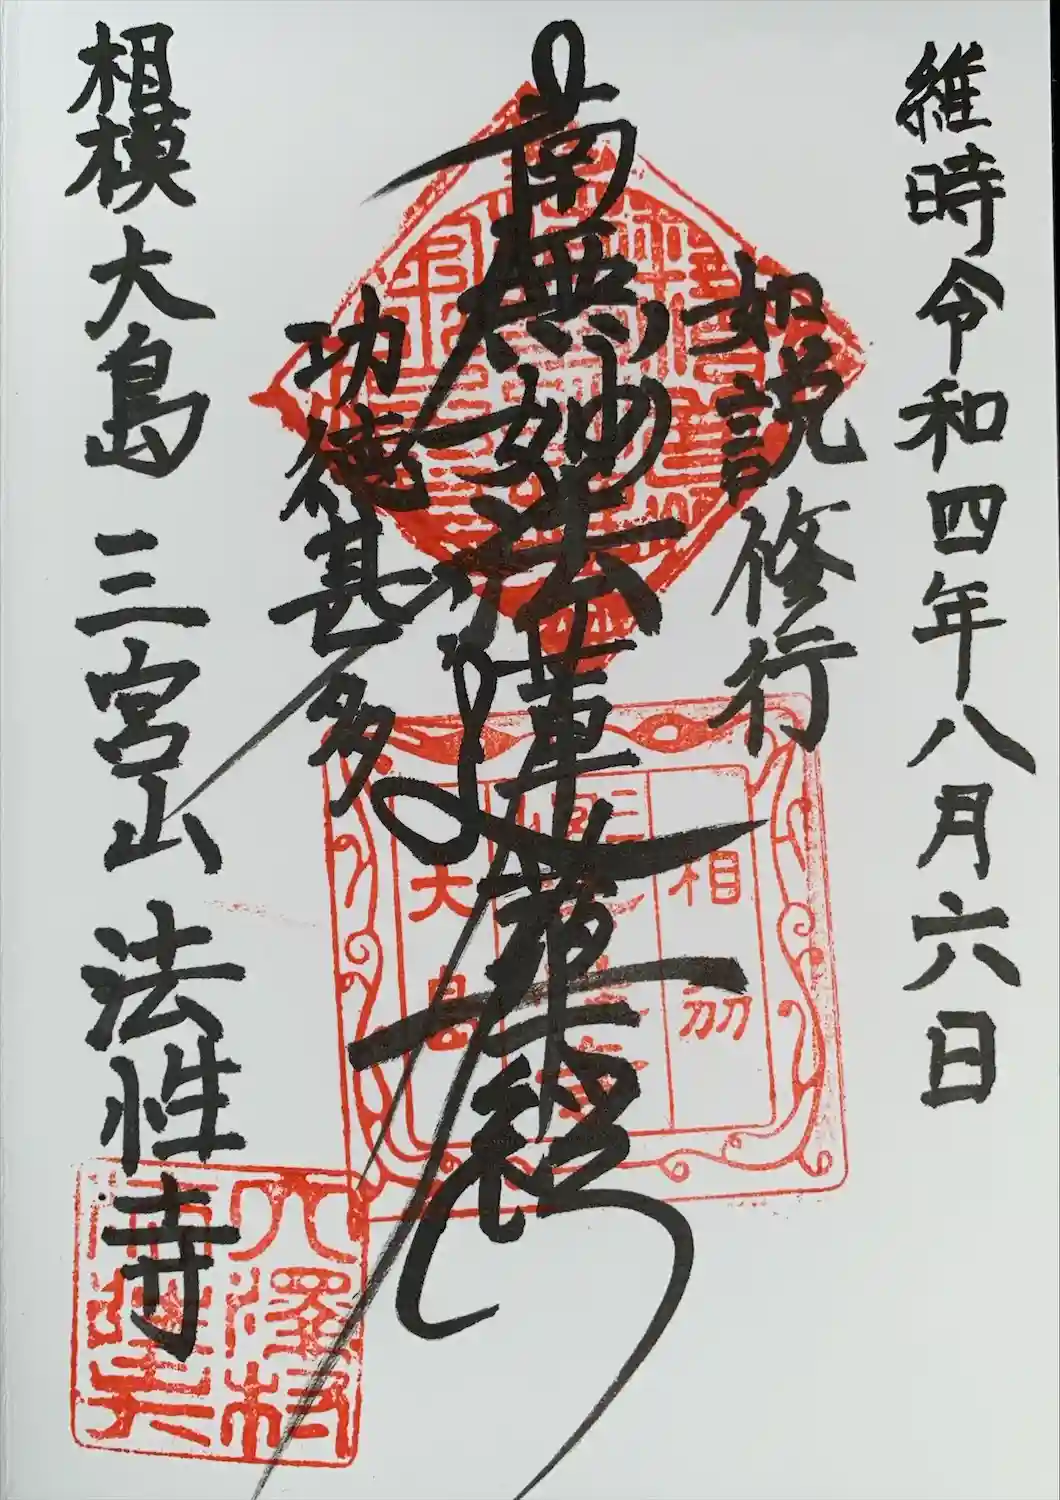 維時令和四年八月六日
如説修行
南無妙法蓮華経
功徳甚多
相模大島 三宮山 法性寺
相刕
大島